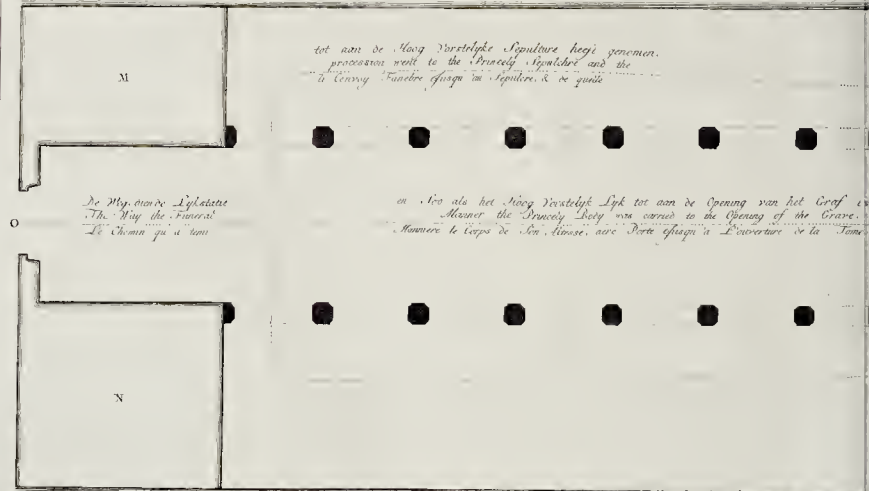 M
tot aan de Hoog Vorstelyke Sepulture heeft genomen.
procession went to the Princely Sepulchre and the
le Convoy Funebre jusqu'au Sepulcre, & de quelle
De Weg dien de Lykstatie
The Way the Funeral
Le Chemin qu'a tenu
O
en Soo als het Hoog Vorstelyk Lyk tot aan de Opening van het Graf
Manner the Princely Body was carried to the Opening of the Grave.
Manniere le Corps de Son Altesse, aete Porte jusqu'a L'ouverture de la
N